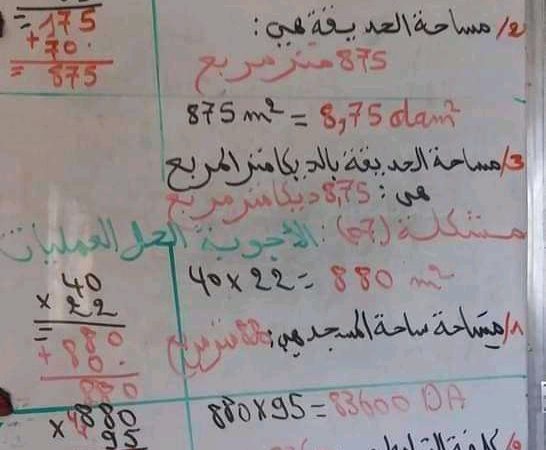 2/ مساحة الحديقة هي:
875 متر مربع
875 m² = 8,75 dam²
3/ مساحة الحديقة بالديكامتر المربع
هي: 8,75 ديكامتر مربع
مشكلة (07): الأجوبة الحل العمليات
40 x 22 = 880 m²
1/ مساحة ساحة المسجد هي: 880 متر مربع
880 x 95 = 83600 DA
2/ كلفة
= 175
+ 70.
= 875
40
x 22
= 80
+ 80.
880
x 880
95